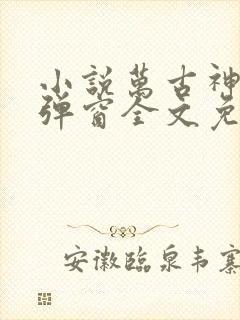 小說萬古神
彈窗全文免
安徽臨泉韦寨